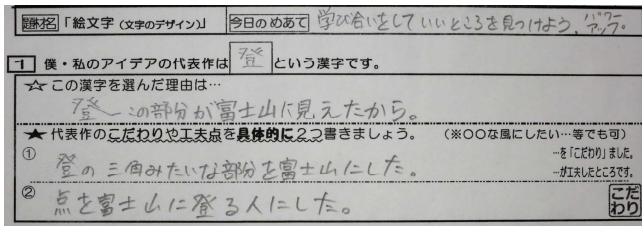 題材名「絵文字（文字のデザイン）」 今日のめあて 学び合いをしていいところを見つけよう。パワーアップ。
1 僕・私のアイデアの代表作は 登 という漢字です。
☆この漢字を選んだ理由は…
登←この部分が富士山に見えたから。
★代表作のこだわりや工夫点を具体的に2つ書きましょう。（※〇〇な風にしたい…等でも可）
① 登の三角みたいな部分を富士山にした。 …を「こだわり」ました。
…が工夫したところです。
② 点を富士山に登る人にした。 こだわり